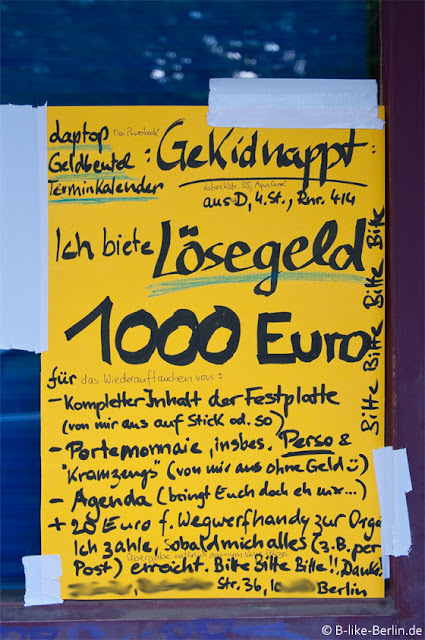 Laptop Mac Powerbook
Geldbeutel : GeKidnappt :
Terminkalender
aus D, 4. St., Rnr. 414
Ich biete Lösegeld
1000 Euro
Bitte Bitte Bitte Bitte
für das Wiederauftauchen von :
- Kompletter Inhalt der Festplatte
(von mir aus auf Stick od. so)
- Portemonnaie, insbes. Perso &
"Kramzeugs" (von mir aus ohne Geld :))
- Agenda (bringt Euch doch eh nix...)
+ 25 Euro f. Wegwerfhandy zur Orga
Ich zahle, sobald mich alles (z.B. per
Post) erreicht. Bitte Bitte Bitte!! Danke!
Str. 36, 10
Berlin
© B-like-Berlin.de